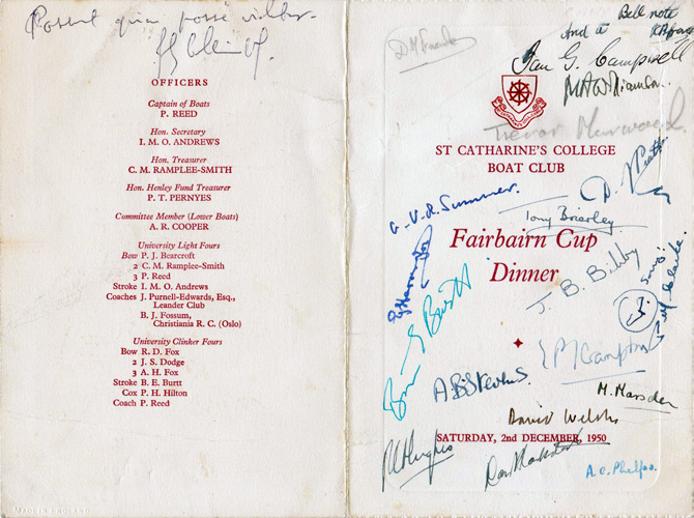 Possunt quia posse
OFFICERS
Captain of Boats
P. REED
Hon. Secretary
I. M. O. ANDREWS
Hon. Treasurer
C. M. RAMPLEE-SMITH
Hon. Henley Fund Treasurer
P. T. PERNYES
Committee Member (Lower Boats)
A. R. COOPER
University Light Fours
Bow P. J. Bearcroft
2 C. M. Ramplee-Smith
3 P. Reed
Stroke I. M. O. Andrews
Coaches J. Purnell-Edwards, Esq.,
Leander Club
B. J. Fossum,
Christiania R. C. (Oslo)
University Clinker Fours
Bow R. D. Fox
2 J. S. Dodge
3 A. H. Fox
Stroke B. E. Burtt
Cox P. H. Hilton
Coach P. Reed
MADE IN ENGLAND
Bell note
And a
Ian G. Campbell
Trevor
ST CATHARINE'S COLLEGE
BOAT CLUB
G. V. R. Summer.
Tony Brierley
Fairbairn Cup
Dinner
J. B. Bibby
Crampton
A B Stevens.
M. Marsden
David Welsh
SATURDAY, 2nd DECEMBER, 1950
Hughes
A. C. Phelps.